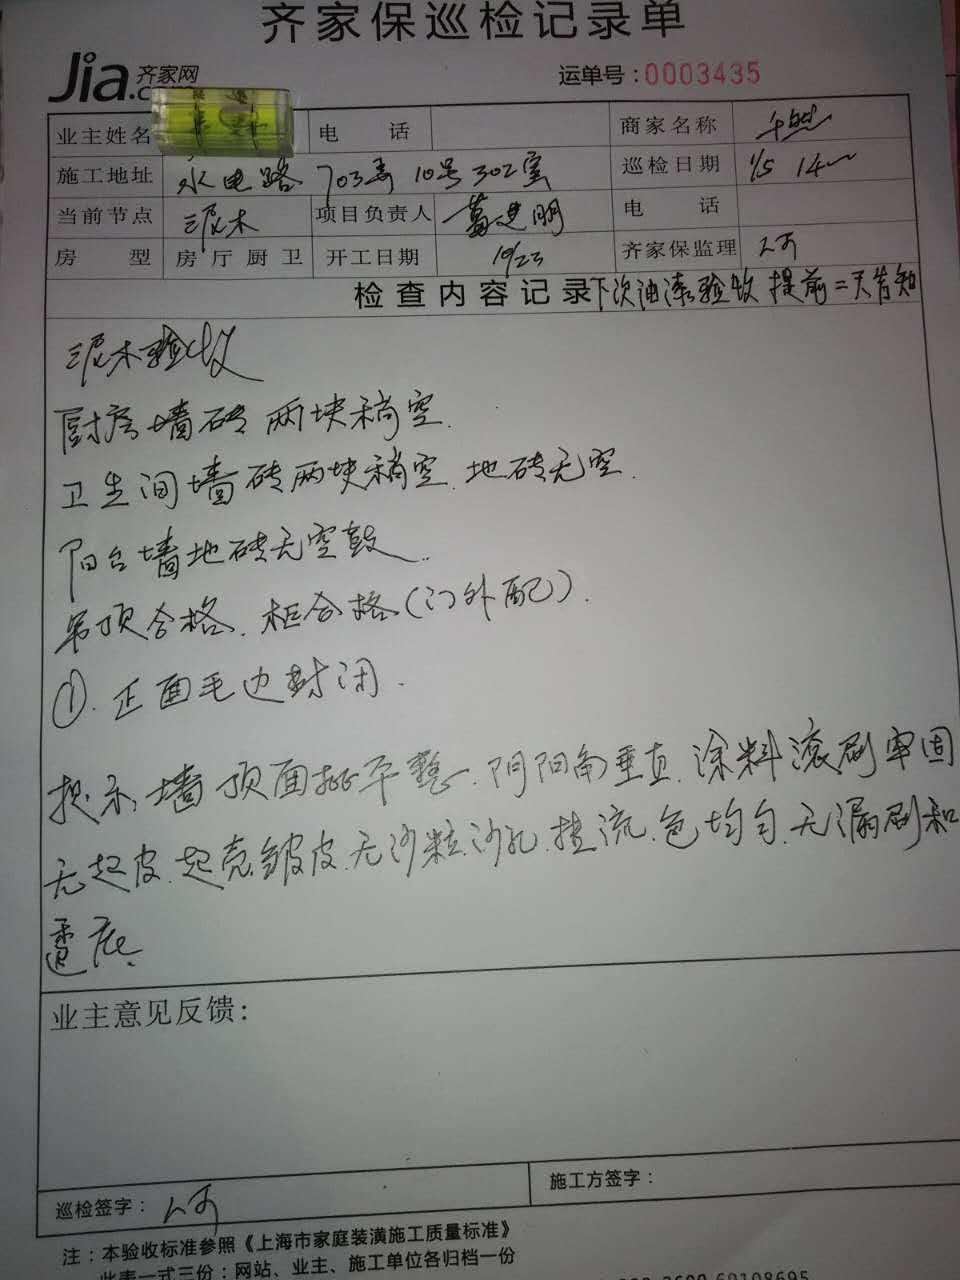 齐家保巡检记录单
Jia.com 齐家网
运单号：0003435
业主姓名 电话 商家名称
施工地址 水电路 703弄 10号302室 巡检日期 1/5 14
当前节点 泥木 项目负责人 葛建明 电话
房型 房厅厨卫 开工日期 10/23 齐家保监理
检查内容记录 下次油漆验收 提前二天告知
泥木验收
厨房墙砖两块稍空.
卫生间墙砖两块稍空.地砖无空.
阳台墙地砖无空鼓.
吊顶合格.柜合格(门外配).
①.正面毛边封闭.
提示 墙顶面批平整.阴阳角垂直.涂料滚刷牢固
无起皮.起壳皱皮.无沙粒沙孔.挂流.色均匀.无漏刷和
透底.
业主意见反馈：
巡检签字： 施工方签字：
注：本验收标准参照《上海市家庭装潢施工质量标准》
此表一式三份：网站、业主、施工单位各归档一份